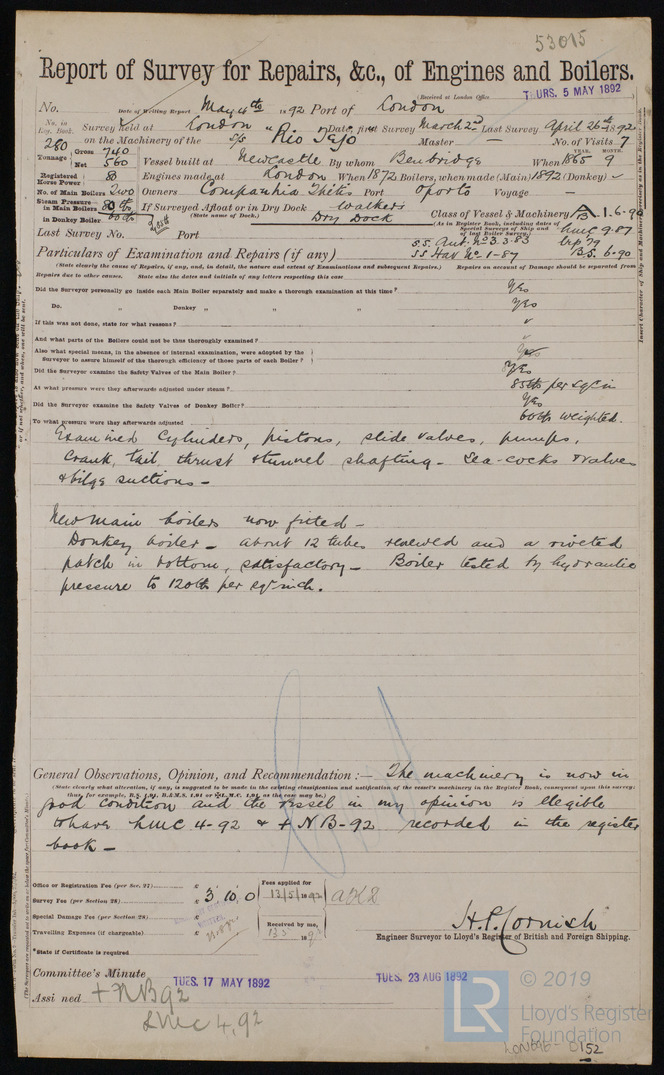 53015
Report of Survey for Repairs, &c., of Engines and Boilers.
(Received at London Office
THURS. 5 MAY 1892
No. Date of Writing Report May 4th 1892 Port of London
No. in Reg. Book. Survey held at London Date, first Survey March 2nd Last Survey April 26th 1892
280 on the Machinery of the S/S "Rio Tejo Master — No. of Visits 7
Tonnage Gross 740 Net 560 Vessel built at Newcastle By whom Benbridge When 1865 YEAR. 9 MONTH.
Registered Horse Power 80 Engines made at London When 1872 Boilers, when made (Main) 1892 (Donkey)
No. of Main Boilers two Owners Companhia Thetis Port Oporto Voyage —
Steam Pressure in Main Boilers 80 lb If Surveyed Afloat or in Dry Dock Walkers Class of Vessel & Machinery A 1. 6-90
in Donkey Boiler 60 lb (State name of Dock.) Dry Dock (As in Register Book, including dates of Special Surveys of Ship and of last Boiler Survey.)
Last Survey No. Port
Particulars of Examination and Repairs (if any) BS. 6-90
(State clearly the cause of Repairs, if any, and, in detail, the nature and extent of Examinations and subsequent Repairs.) Repairs on account of Damage should be separated from
Repairs due to other causes. State also the dates and initials of any letters respecting this case
Did the Surveyor personally go inside each Main Boiler separately and make a thorough examination at this time? Yes
Do. " Donkey " " " Yes
If this was not done, state for what reasons?
And what parts of the Boilers could not be thus thoroughly examined?
Also what special means, in the absence of internal examination, were adopted by the
Surveyor to assure himself of the thorough efficiency of those parts of each Boiler?
Did the Surveyor examine the Safety Valves of the Main Boiler? Yes
At what pressure were they afterwards adjusted under steam? 85 lb per sq in
Did the Surveyor examine the Safety Valves of Donkey Boiler? Yes
To what pressure were they afterwards adjusted 60 lb weighted.
Examined Cylinders, pistons, slide valves, pumps,
Crank, tail, thrust & tunnel shafting - Sea-cocks & valves
& bilge suctions -
New main boilers now fitted -
Donkey boiler - about 12 tubes renewed and a riveted
patch in bottom, satisfactory - Boiler tested by hydraulic
pressure to 120 lb per sq inch.
General Observations, Opinion, and Recommendation :— The machinery is now in
(State clearly what alteration, if any, is suggested to be made in the existing classification and notification of the vessel's machinery in the Register Book, consequent upon this survey:
good condition and the vessel in my opinion is elegible
to have LMC 4-92 & + NB-92 recorded in the register
book -
Office or Registration Fee (per Sec. 27) £
Survey Fee (per Section 28) £ 3 10 0
Special Damage Fee (per Section 28) £
Travelling Expenses (if chargeable) £
Fees applied for
13/5/1892
Received by me,
H. P. Cornish
Engineer Surveyor to Lloyd's Register of British and Foreign Shipping.
*State if Certificate is required
Committee's Minute TUES. 17 MAY 1892 TUES. 23 AUG 1892
Assigned + NB 92
LMC 4,92
LR
© 2019
Lloyd's Register
Foundation
0152